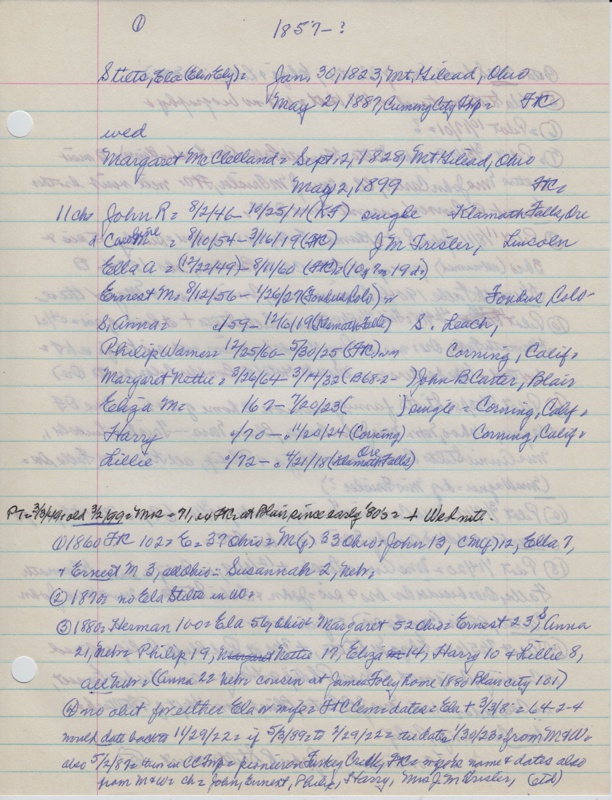 ① 1857-?
Stiets, Ela (Elin Ely) = Jan. 30, 1823, Mt. Gilead, Ohio
May 2, 1887, Cuming City Twp = FtC
wed
Margaret McClelland = Sept. 2, 1828, Mt Gilead, Ohio
May 2, 1899 FtC
11 chs John R = 8/2/46 - 10/25/11 (KF) single Klamath Falls, Ore
Caroline = 8/10/54 - 3/16/19 (FtC) J M Frisler, Lincoln
Ella A = (12/22/49) - 8/11/60 (FtC) = (10y 7m 19d)
Ernest M = 8/12/56 - 1/26/27 Colo) Colo-
S. Anna = c/59 - 12/6/19 (Klamath Falls) S. Leach,
Philip Warner = 12/25/60 - 5/30/25 (FtC) Corning, Calif.
Margaret Nettie = 3/26/64 - 3/14/32 (B68-2- ) John B Carter, Blair
Eliza M = 7/20/23 ( ) single = Corning, Calif.
Harry c/70 - 11/20/24 (Corning) Corning, Calif.
Lillie c/72 - c 4/21/18 (Klamath Falls) Ore
PT = 3/3/99 = old 3/2/99 = Mrs = 71, FtC at Blair since early '80s = + Wed nite.
① 1860 FtC 102 = E = 37 Ohio = M(y) 33 Ohio = John 13, C M(y) 12, Ella 7,
+ Ernest M 3, all Ohio = Susannah 2, Nebr.
② 1870 = no Ela Stiets in WC=
③ 1880 = Herman 100 = Ela 56 Ohio = Margaret 52 Ohio = Ernest 23, S Anna
21, Nebr = Philip 19, Nettie 17, Eliza 14, Harry 10 + Lillie 8,
all Nebr = (Anna 22 Nebr cousin at James Foley home 1880 Blair city 101)
④ no obit for either Ela or wife = FtC Cem dates = Ela + 3/3/8 = 64-2-4
would date back to 11/29/22 = if 5/3/89 to 3/29/22 = the date 1/30/23 = from M+W=
also 5/2/87 = then in CC Twp = pioneer on Turkey Creek, FtC = maybe name + dates also
from M+W = ch = John, Ernest, Philip, Harry, Mrs J M Frisler, (etc)